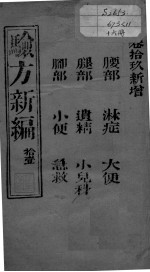 卷拾玖新增
腰部 淋症 大便
腿部 遺精 小兒科
腳部 小便 急救
驗方新編
拾壹